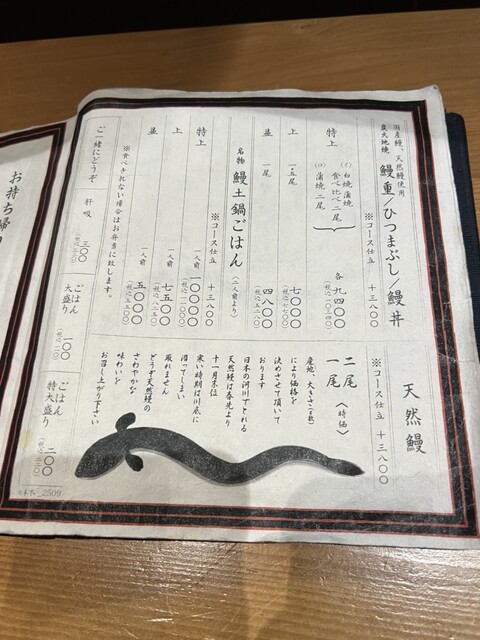 国産鰻、天然鰻使用
炭火地焼
鰻重/ひつまぶし/鰻丼
※コース仕立 十三八〇〇
特上
(イ)白焼蒲焼
食べ比べ二尾
(ロ)蒲焼 二尾
各 九四〇〇
上
一・五尾
七〇〇〇
(税込七七〇〇)
並
一尾
四八〇〇
(税込五二八〇)
名物 鰻土鍋ごはん
(二人前より)
※コース仕立 十三八〇〇
特上
一人前 一〇〇〇〇
(税込一一〇〇〇)
上
一人前 七五〇〇
(税込八二五〇)
並
一人前 五〇〇〇
(税込五五〇〇)
※食べきれない場合はお弁当に致します。
ご一緒にどうぞ
肝吸
三〇〇
ごはん
大盛り
一〇〇
ごはん
特大盛り
二〇〇
天然鰻
※コース仕立 十三八〇〇
二尾
一尾
〈時価〉
産地、大きさ
により価格を
決めさせて頂いて
おります
日本の河川でとれる
天然鰻は春先より
十一月末位
寒い時期は川底に
潜ってしまい
取れません
どうぞ天然鰻の
さわやかな
味わいを
お召し上がり下さい
2509
お持ち帰り